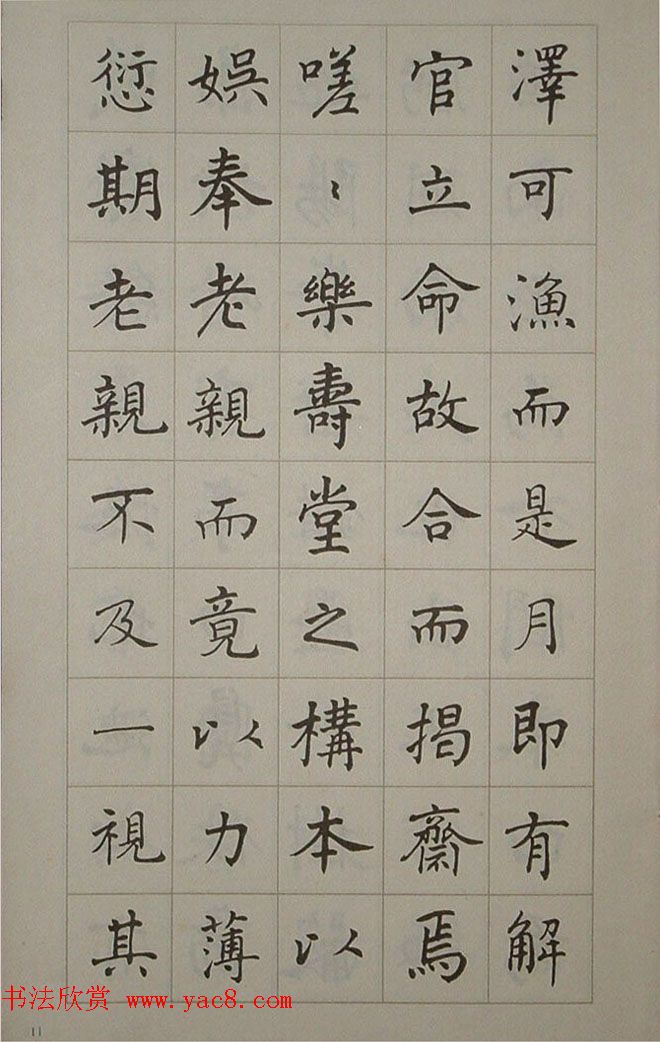 澤可漁而是月即有解
官立命故合而揭齋焉
嗟〻樂壽堂之構本以
娯奉老親而竟以力薄
愆期老親不及一視其
书法欣赏 www.yac8.com
11